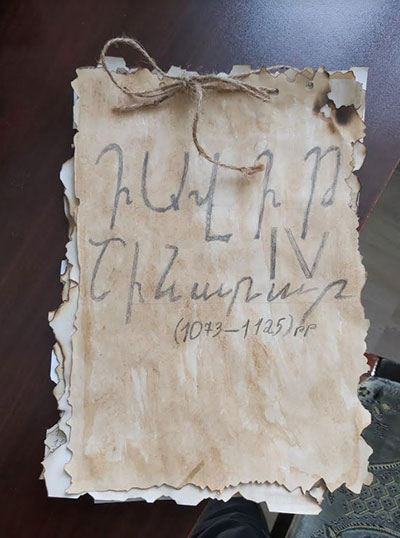 ԴԱՎԻԹ
IV
Շինարար
(1073–1125)թթ